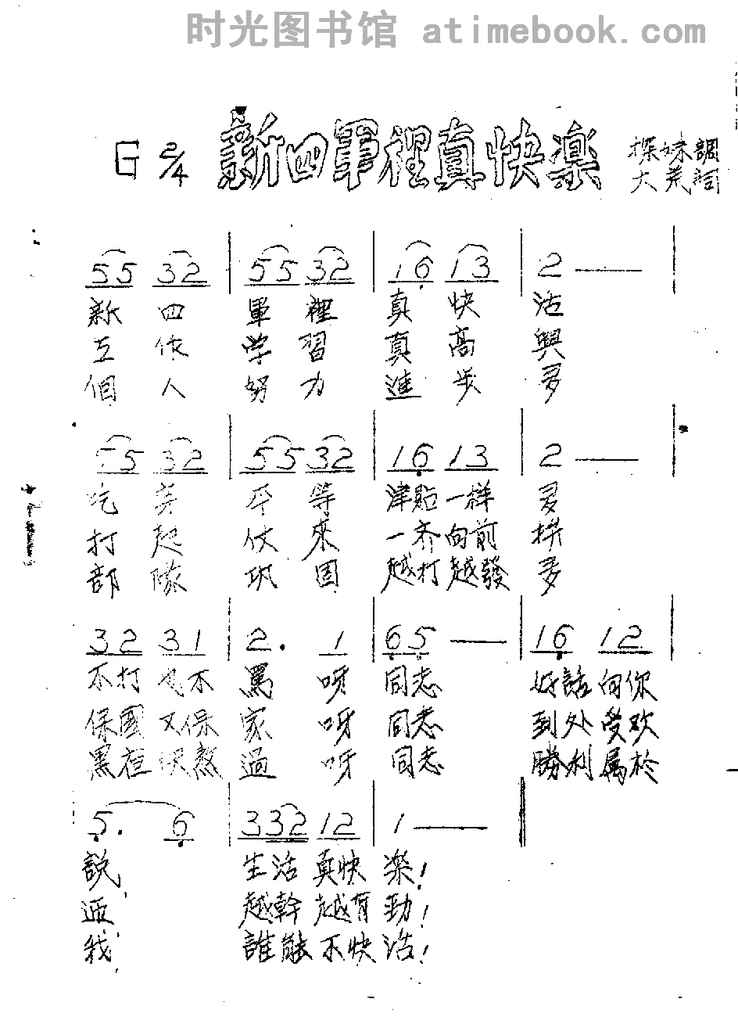 时光图书馆 atimebook.com
G 2/4 新四軍裡真快樂 探妹調
大荒詞
55 32 | 55 32 | 16 13 | 2 —
新 四 軍 裡 真 快 活
工 作 学 習 真 高 興
個 人 努 力 進 步 多
55 32 | 55 32 | 16 13 | 2 —
吃 平 等 津貼 一样 多
打 起 仗 來 一齐 向前 拼
部 隊 巩 固 越打 越發 多
32 31 | 2. 1 | 65 — | 16 12
不打 也不 罵 呀 同志 好話 向你
保國 又保 家 呀 同志 到处 受欢
黑夜 過 呀 同志 勝利 属於
5. 6 | 332 12 | 1 —
說, 生活 真快 樂!
迎, 越幹 越有 勁!
我, 誰能 不快 活!